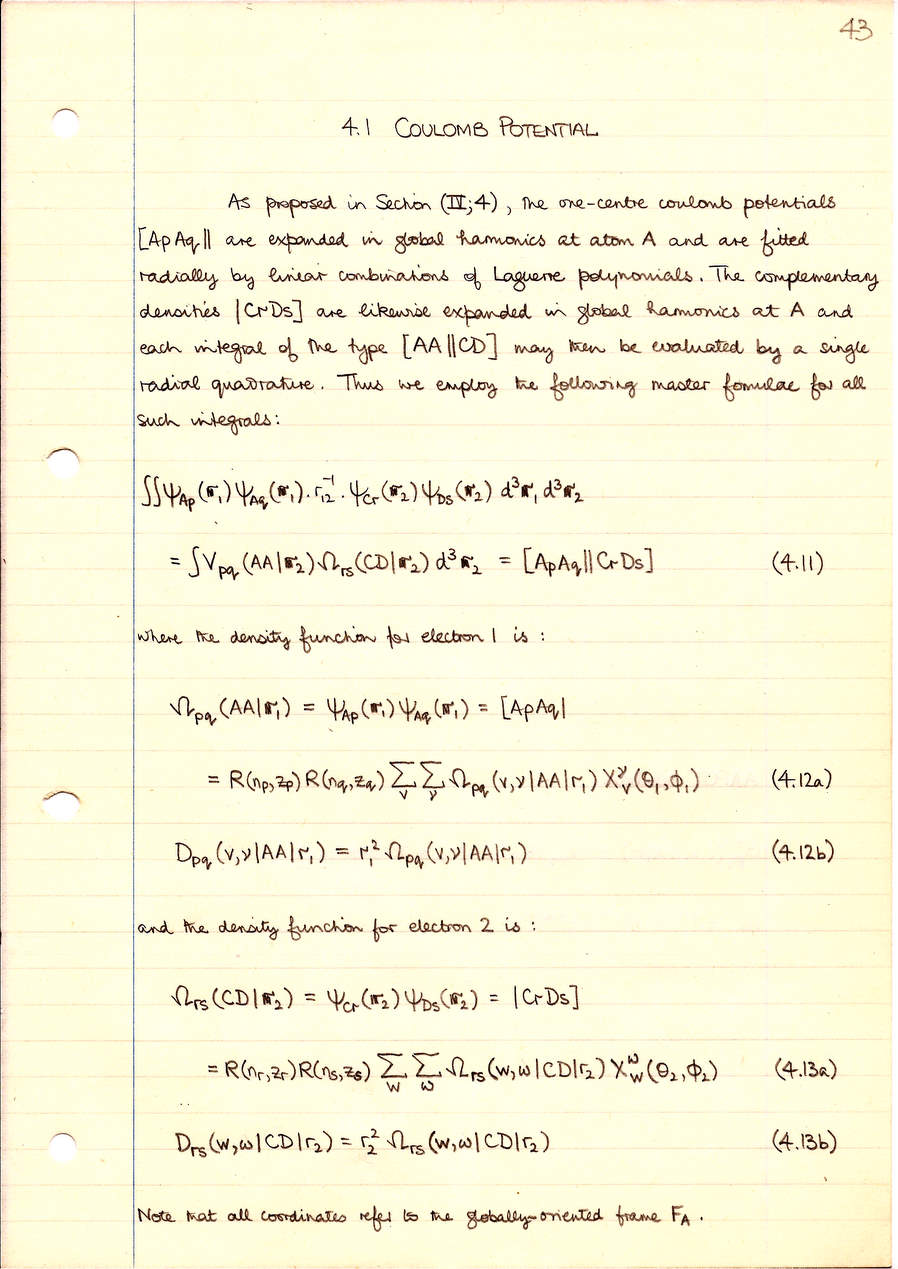 43
4.1 COULOMB POTENTIAL
As proposed in Section (IV;4), the one-centre coulomb potentials
[ApAq|| are expanded in global harmonics at atom A and are fitted
radially by linear combinations of Laguerre polynomials. The complementary
densities |CrDs] are likewise expanded in global harmonics at A and
each integral of the type [AA||CD] may then be evaluated by a single
radial quadrature. Thus we employ the following master formulae for all
such integrals:
∫∫ψ_Ap(𝐫₁)ψ_Aq(𝐫₁).r₁₂⁻¹.ψ_Cr(𝐫₂)ψ_Ds(𝐫₂) d³𝐫₁ d³𝐫₂
= ∫V_pq(AA|𝐫₂)Ω_rs(CD|𝐫₂) d³𝐫₂ = [ApAq||CrDs] (4.11)
where the density function for electron 1 is :
Ω_pq(AA|𝐫₁) = ψ_Ap(𝐫₁)ψ_Aq(𝐫₁) = [ApAq|
= R(n_p,z_p)R(n_q,z_q) ∑_v ∑_ν Ω_pq(v,ν|AA|r₁) X_v^ν(θ₁,φ₁) (4.12a)
D_pq(v,ν|AA|r₁) = r₁² Ω_pq(v,ν|AA|r₁) (4.12b)
and the density function for electron 2 is :
Ω_rs(CD|𝐫₂) = ψ_Cr(𝐫₂)ψ_Ds(𝐫₂) = |CrDs]
= R(n_r,z_r)R(n_s,z_s) ∑_w ∑_ω Ω_rs(w,ω|CD|r₂) X_w^ω(θ₂,φ₂) (4.13a)
D_rs(w,ω|CD|r₂) = r₂² Ω_rs(w,ω|CD|r₂) (4.13b)
Note that all coordinates refer to the globally-oriented frame F_A.